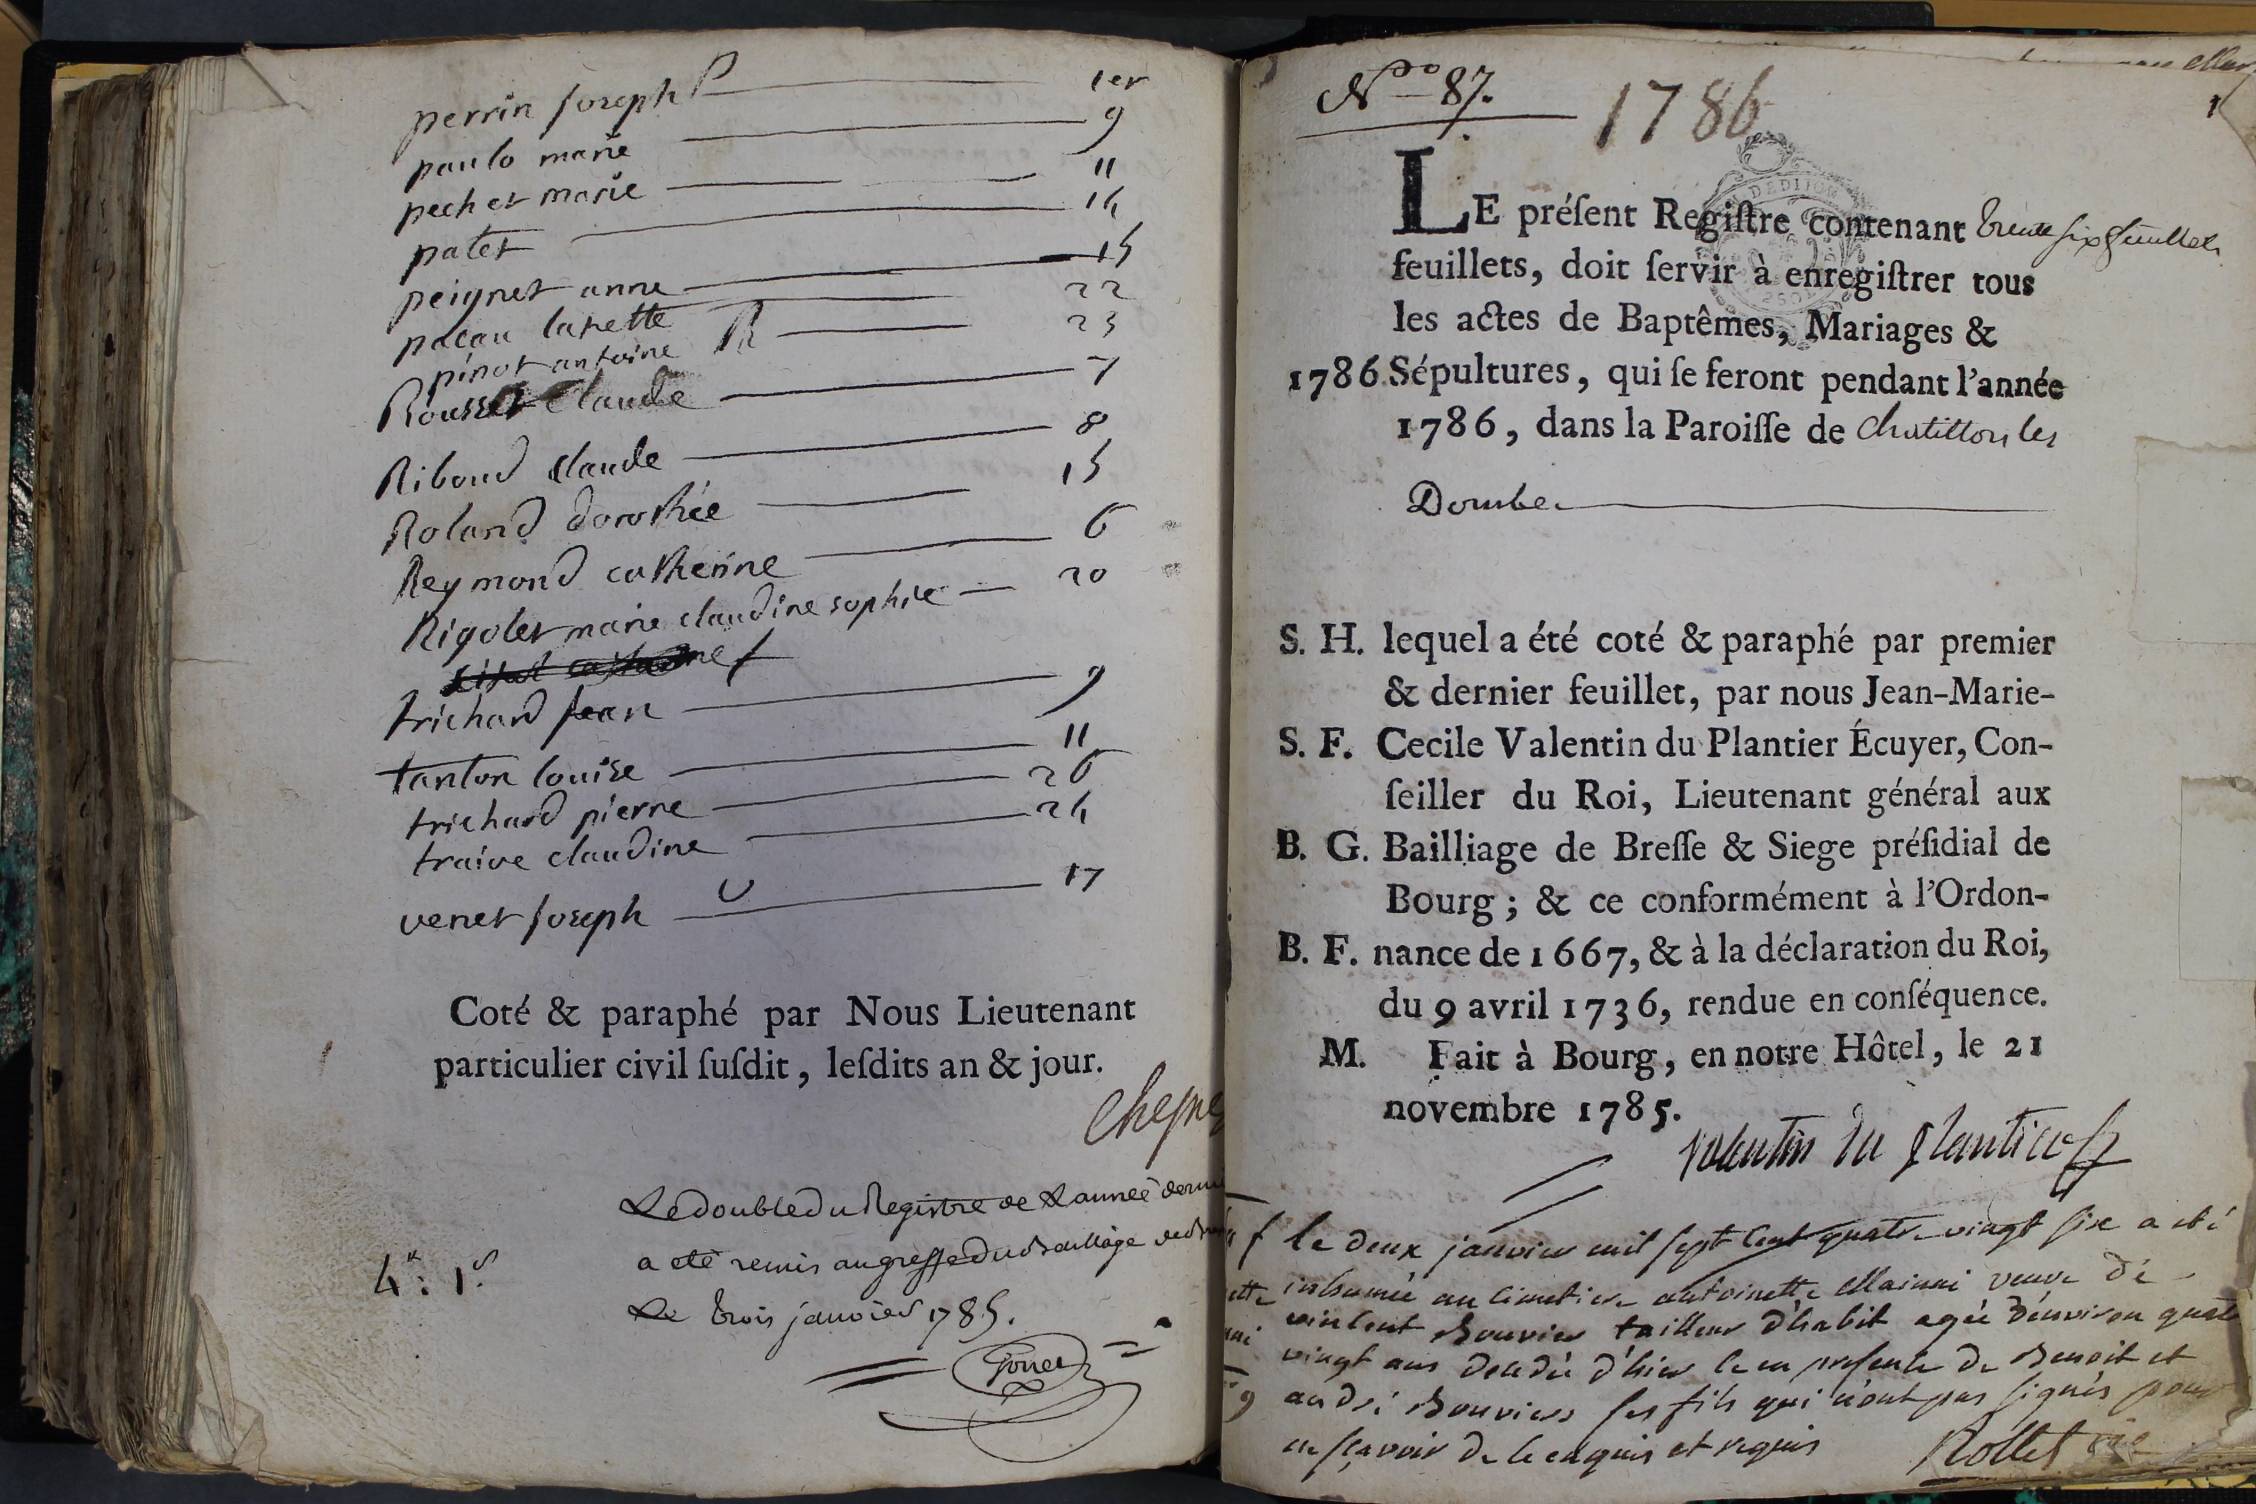 P
perrin joseph 1er
paulo marie 9
pechet marie 11
patet 14
peignet anne 15
pacau lanette 22
pinot antoine 23
R
Rousset Claude 7
Riboud Claude 8
Roland dorothée 15
Reymond catherine 6
Rigolet marie claudine sophie 20
trichard jean 9
tanton louise 11
trichard pierre 26
traive claudine 24
V
venet joseph 17
Coté & paraphé par Nous Lieutenant
particulier civil ſuſdit, leſdits an & jour.
Le double du Registre de L'année
a eté remis au greffe du Bailliage
Le trois janvier 1785.
Gonet
No 87. 1786
1
LE préſent Regiſtre contenant trente six feuillets
feuillets, doit ſervir à enregiſtrer tous
les actes de Baptêmes, Mariages &
1786 Sépultures, qui ſe feront pendant l'année
1786, dans la Paroiſſe de chatillon les
Dombe
S. H. lequel a été coté & paraphé par premier
& dernier feuillet, par nous Jean-Marie-
S. F. Cecile Valentin du Plantier Écuyer, Con-
ſeiller du Roi, Lieutenant général aux
B. G. Bailliage de Breſſe & Siege préſidial de
Bourg ; & ce conformément à l'Ordon-
B. F. nance de 1667, & à la déclaration du Roi,
du 9 avril 1736, rendue en conſéquence.
M. Fait à Bourg, en notre Hôtel, le 21
novembre 1785.
Valentin du plantier
le deux janvier mil sept cent quatre vingt six a été
inhumée au cimetiere antoinette Mainni veuve de
vincent Bouvier tailleur d'habit agée d'environ quatre
vingt ans decedée d'hier le en presence de Benoit et
andré Bouviers ses fils qui n'ont pas signés pour
ne sçavoir de ce enquis et requis
Rollet vic